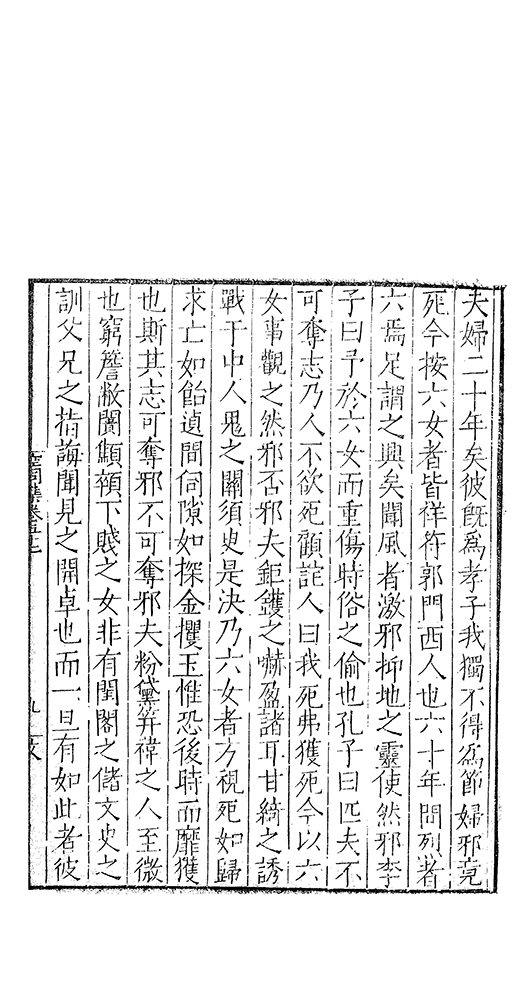 夫婦二十年矣彼旣爲孝子我獨不得爲節婦邪竟
死今按六女者皆祥符郭門西人也六十年間列者
六焉足謂之興矣聞風者激邪抑地之靈使然邪李
子曰予於六女而重傷時俗之偷也孔子曰匹夫不
可奪志乃人不欲死顧詑人曰我死弗獲死今以六
女事觀之然邪否邪夫鉅鑊之嚇盈諸耳甘綺之誘
戰于中人鬼之關須臾是決乃六女者方視死如歸
求亡如飴遉間伺隙如探金攫玉惟恐後時而靡獲
也斯其志可奪邪不可奪邪夫粉黛笄褘之人至微
也窮簷敝闥顒頷下賤之女非有閨閣之偆文史之
訓父兄之指誨聞見之開卓也而一旦有如此者彼
空同集卷五十七
九